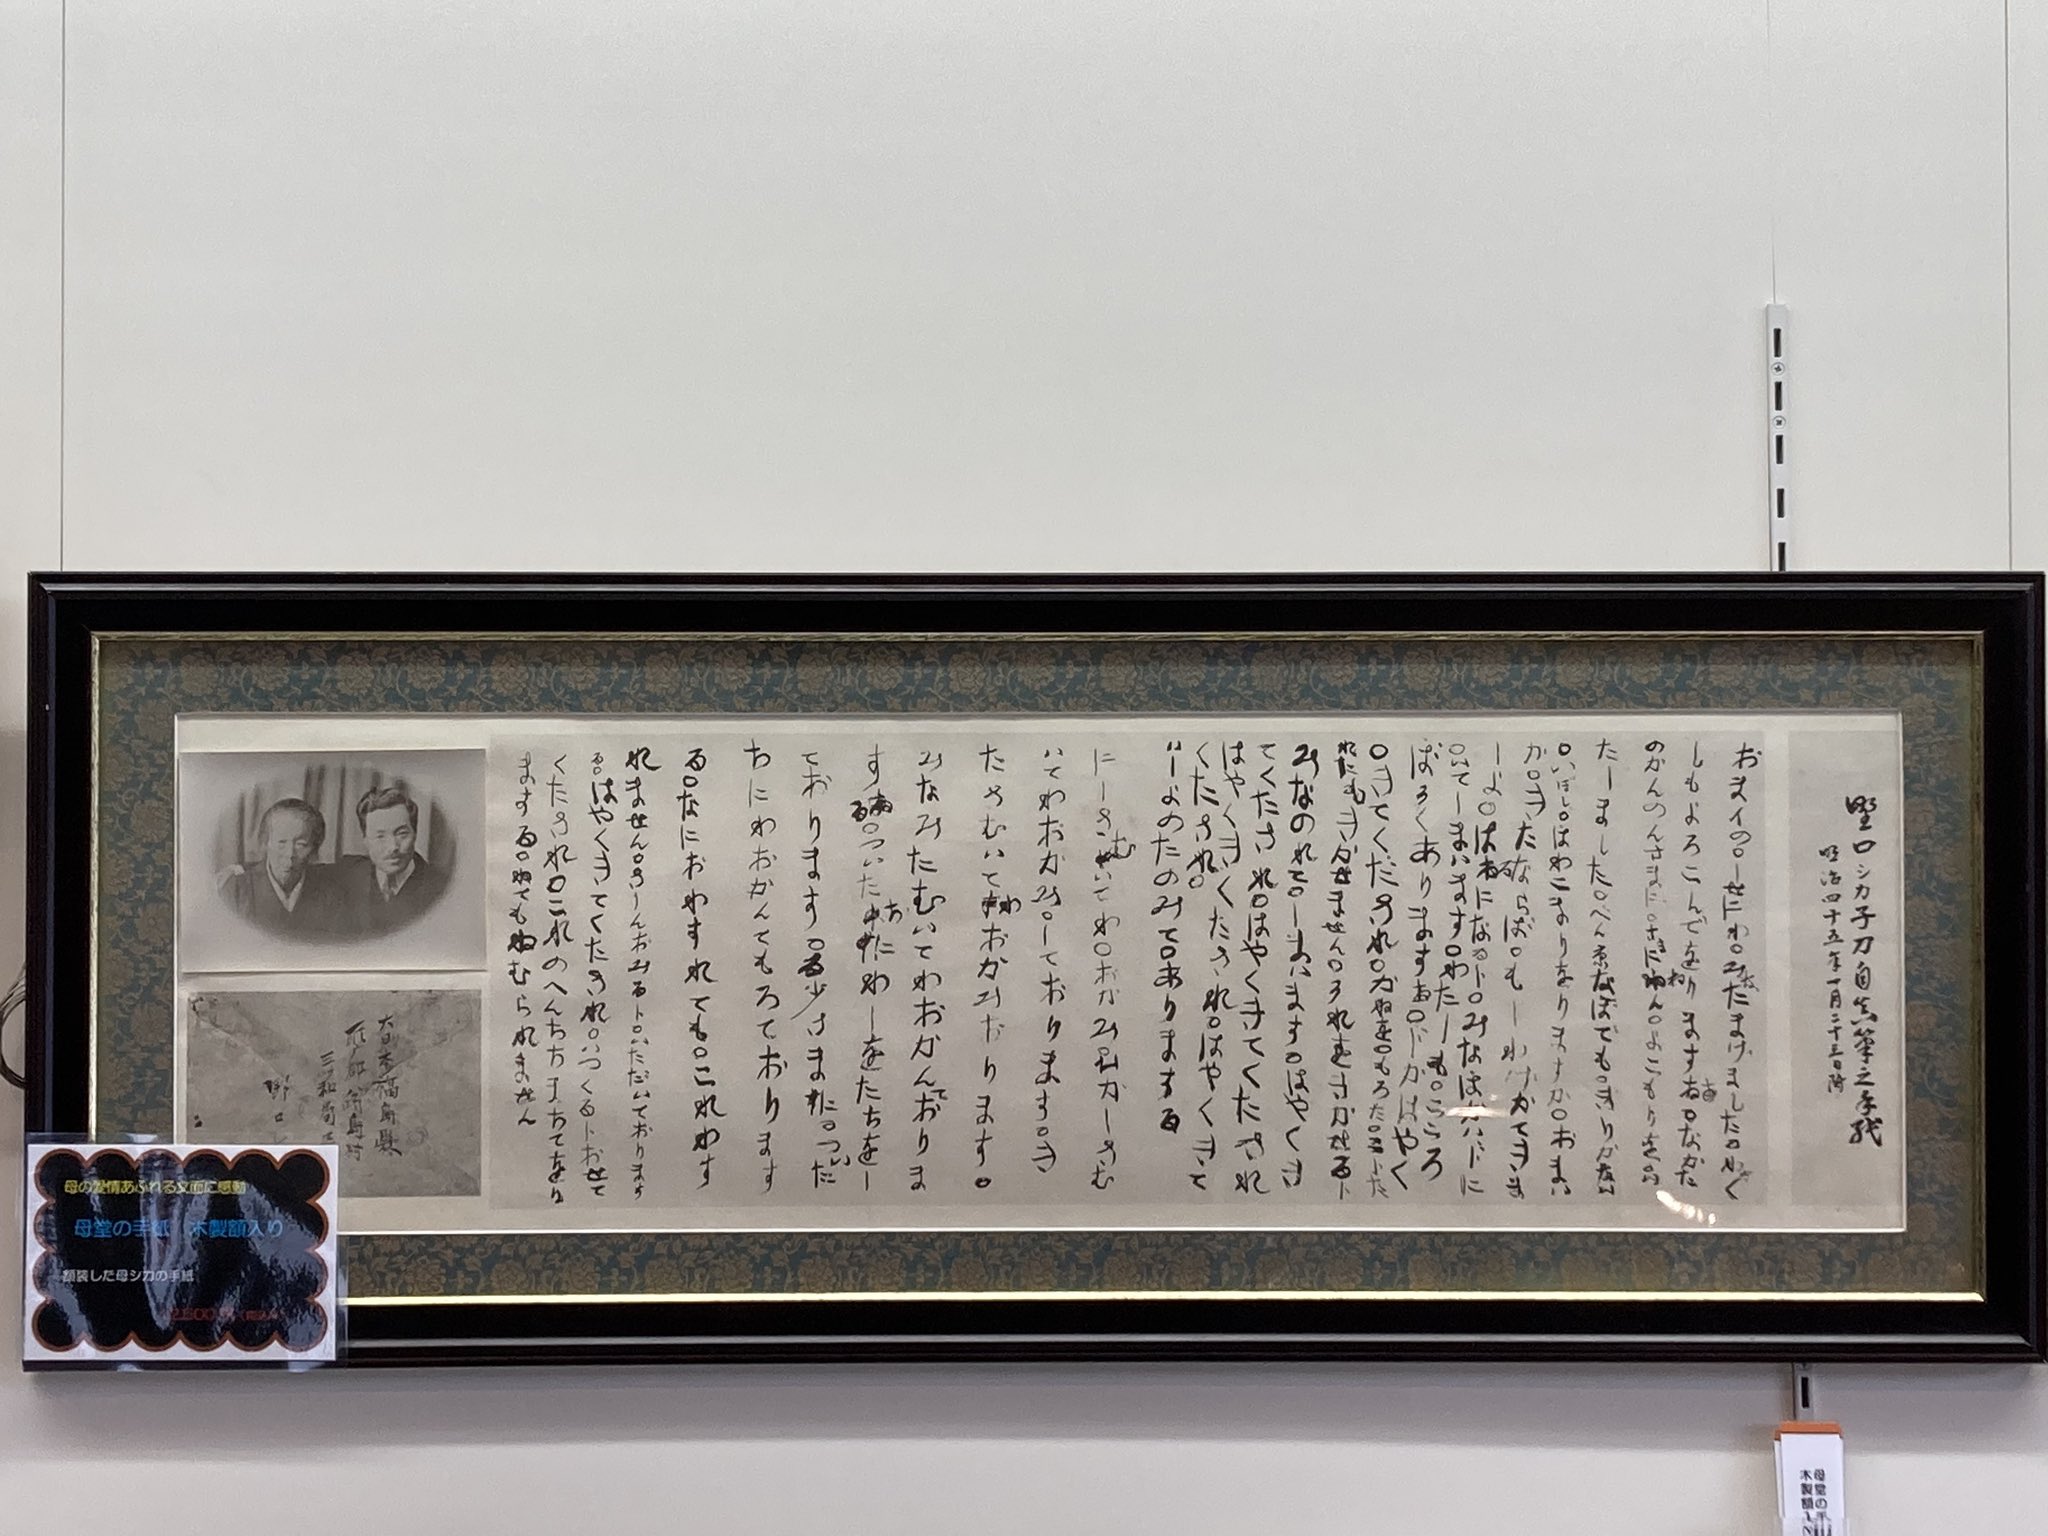 野口シカ子刀自真筆之手紙
明治四十五年一月二十三日附
おまイの。しせにわ。みなたまけました。わたく
しもよろこんでをりまする。なかた
のかんのんさまに。さまにねん。よこもりを。い
たしました。べん京なぼでも。きりかない
。いぼし。ほわこまりをりますか。おまい
か。きたならば。もしわけかてきま
しよ。はるになるト。みなほかいドに
。いてしまいます。わたしも。こころ
ぼそくありまする。ドかはやく
。きてくだされ。かねを。もろた。ことた
れにもきかせません。それをきかせるト
みなのれて。しまいます。はやくき
てくたされ。はやくきてくたされ
はやくきてくたされ。はやくきて
くたされ。
いしよのたのみて。ありまする
にしさむいてわ。おかみ。ひかしさむ
いてわおかみ。しております。き
たさむいてわおかみおります。
みなみたむいてわおかんておりま
する。ついたちにわしをたちをし
ております。る少さまに。ついた
ちにわおかんてもろております
る。なにおわすれても。これわす
れません。さしんおみるト。いただいております
る。はやくきてくたされ。いつくるトおせて
くたされ。これのへんちちまちてをり
まする。ねてもねむられません
大日本福島県
三ツ和
野口
母の愛情あふれる文面に感動
母堂の手紙 木製額入り
額装した母シカの手紙
母堂の手
木製額入